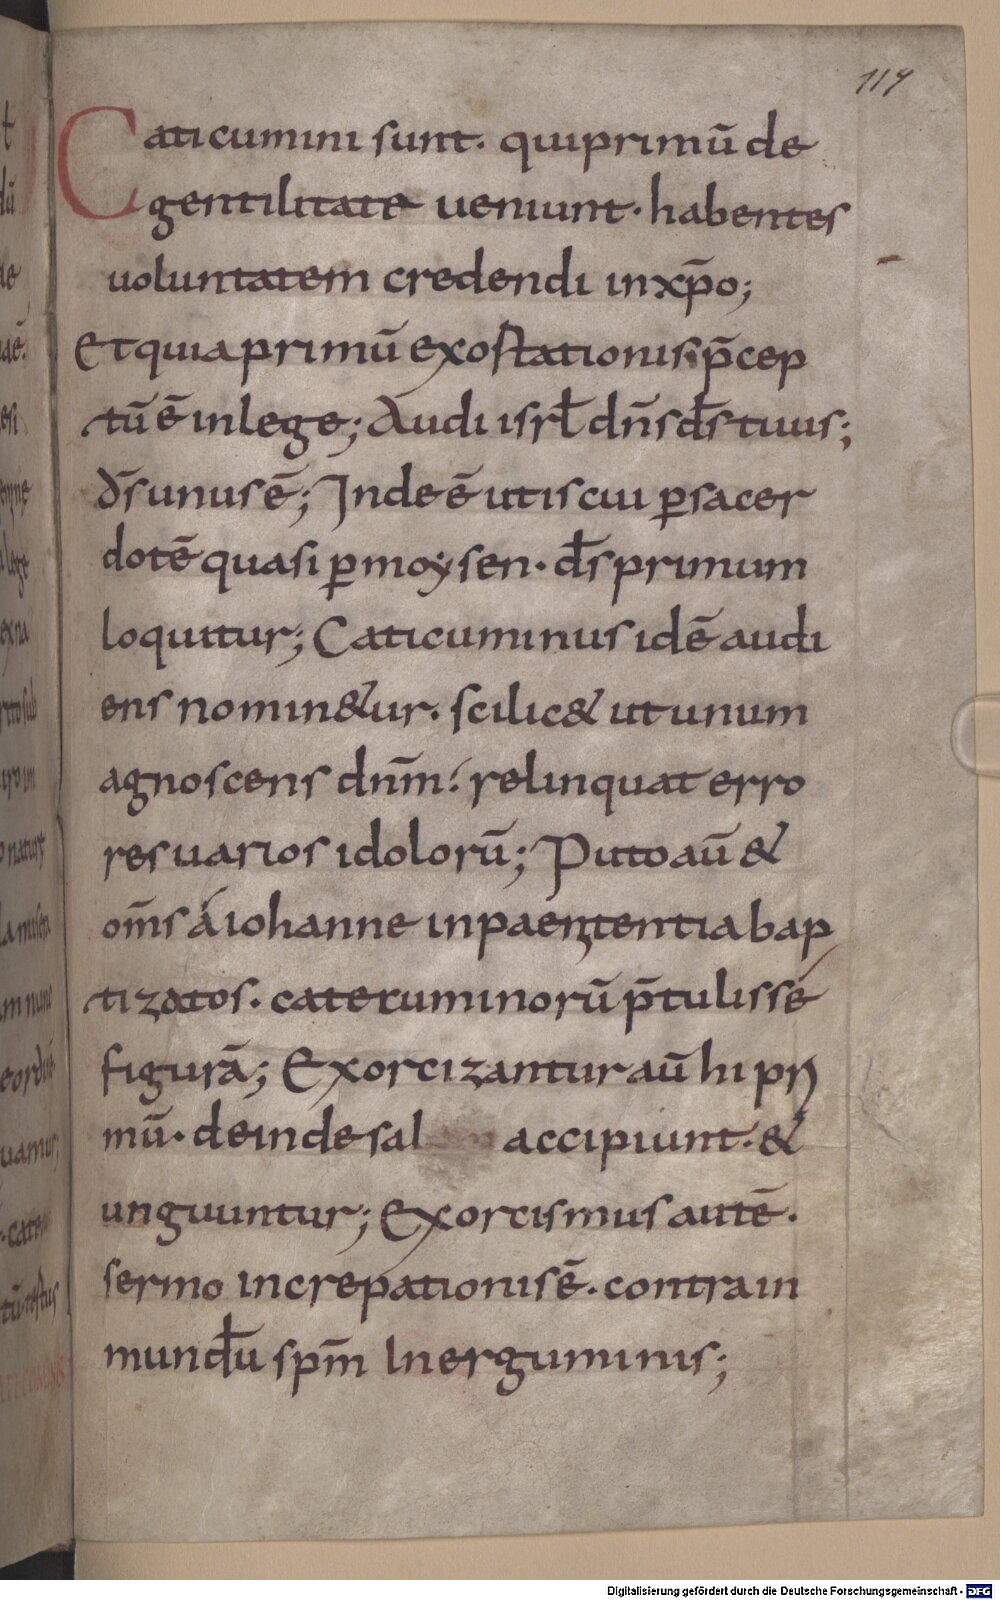 119
Caticumini sunt. qui primū de
gentilitate ueniunt. habentes
uoluntatem credendi in xp̄o;
Et quia primū exostationis p̄cep
tū ē in lege; Audi isrl̄ dn̄s d̄s tuus;
d̄s unus ē; Inde ē ut is cui ꝑ sacer
dotē quasi ꝑ moysen. d̄s primum
loquitur; Caticuminus idē audi
ens nomin&ur. scilic& ut unum
agnoscens dn̄m. relinquat erro
res uarios idolorū; Puto aū &
om̄s á iohanne in paenitentia bap
tizatos. catecuminorū p̄tulisse
figurā; Exorcizantur aū hi pri
mū. deinde sal accipiunt. &
unguuntur; Exorcismus autē.
sermo increpationis ē. contra in
mundū sp̄m Inerguminis;
Digitalisierung gefördert durch die Deutsche Forschungsgemeinschaft - DFG